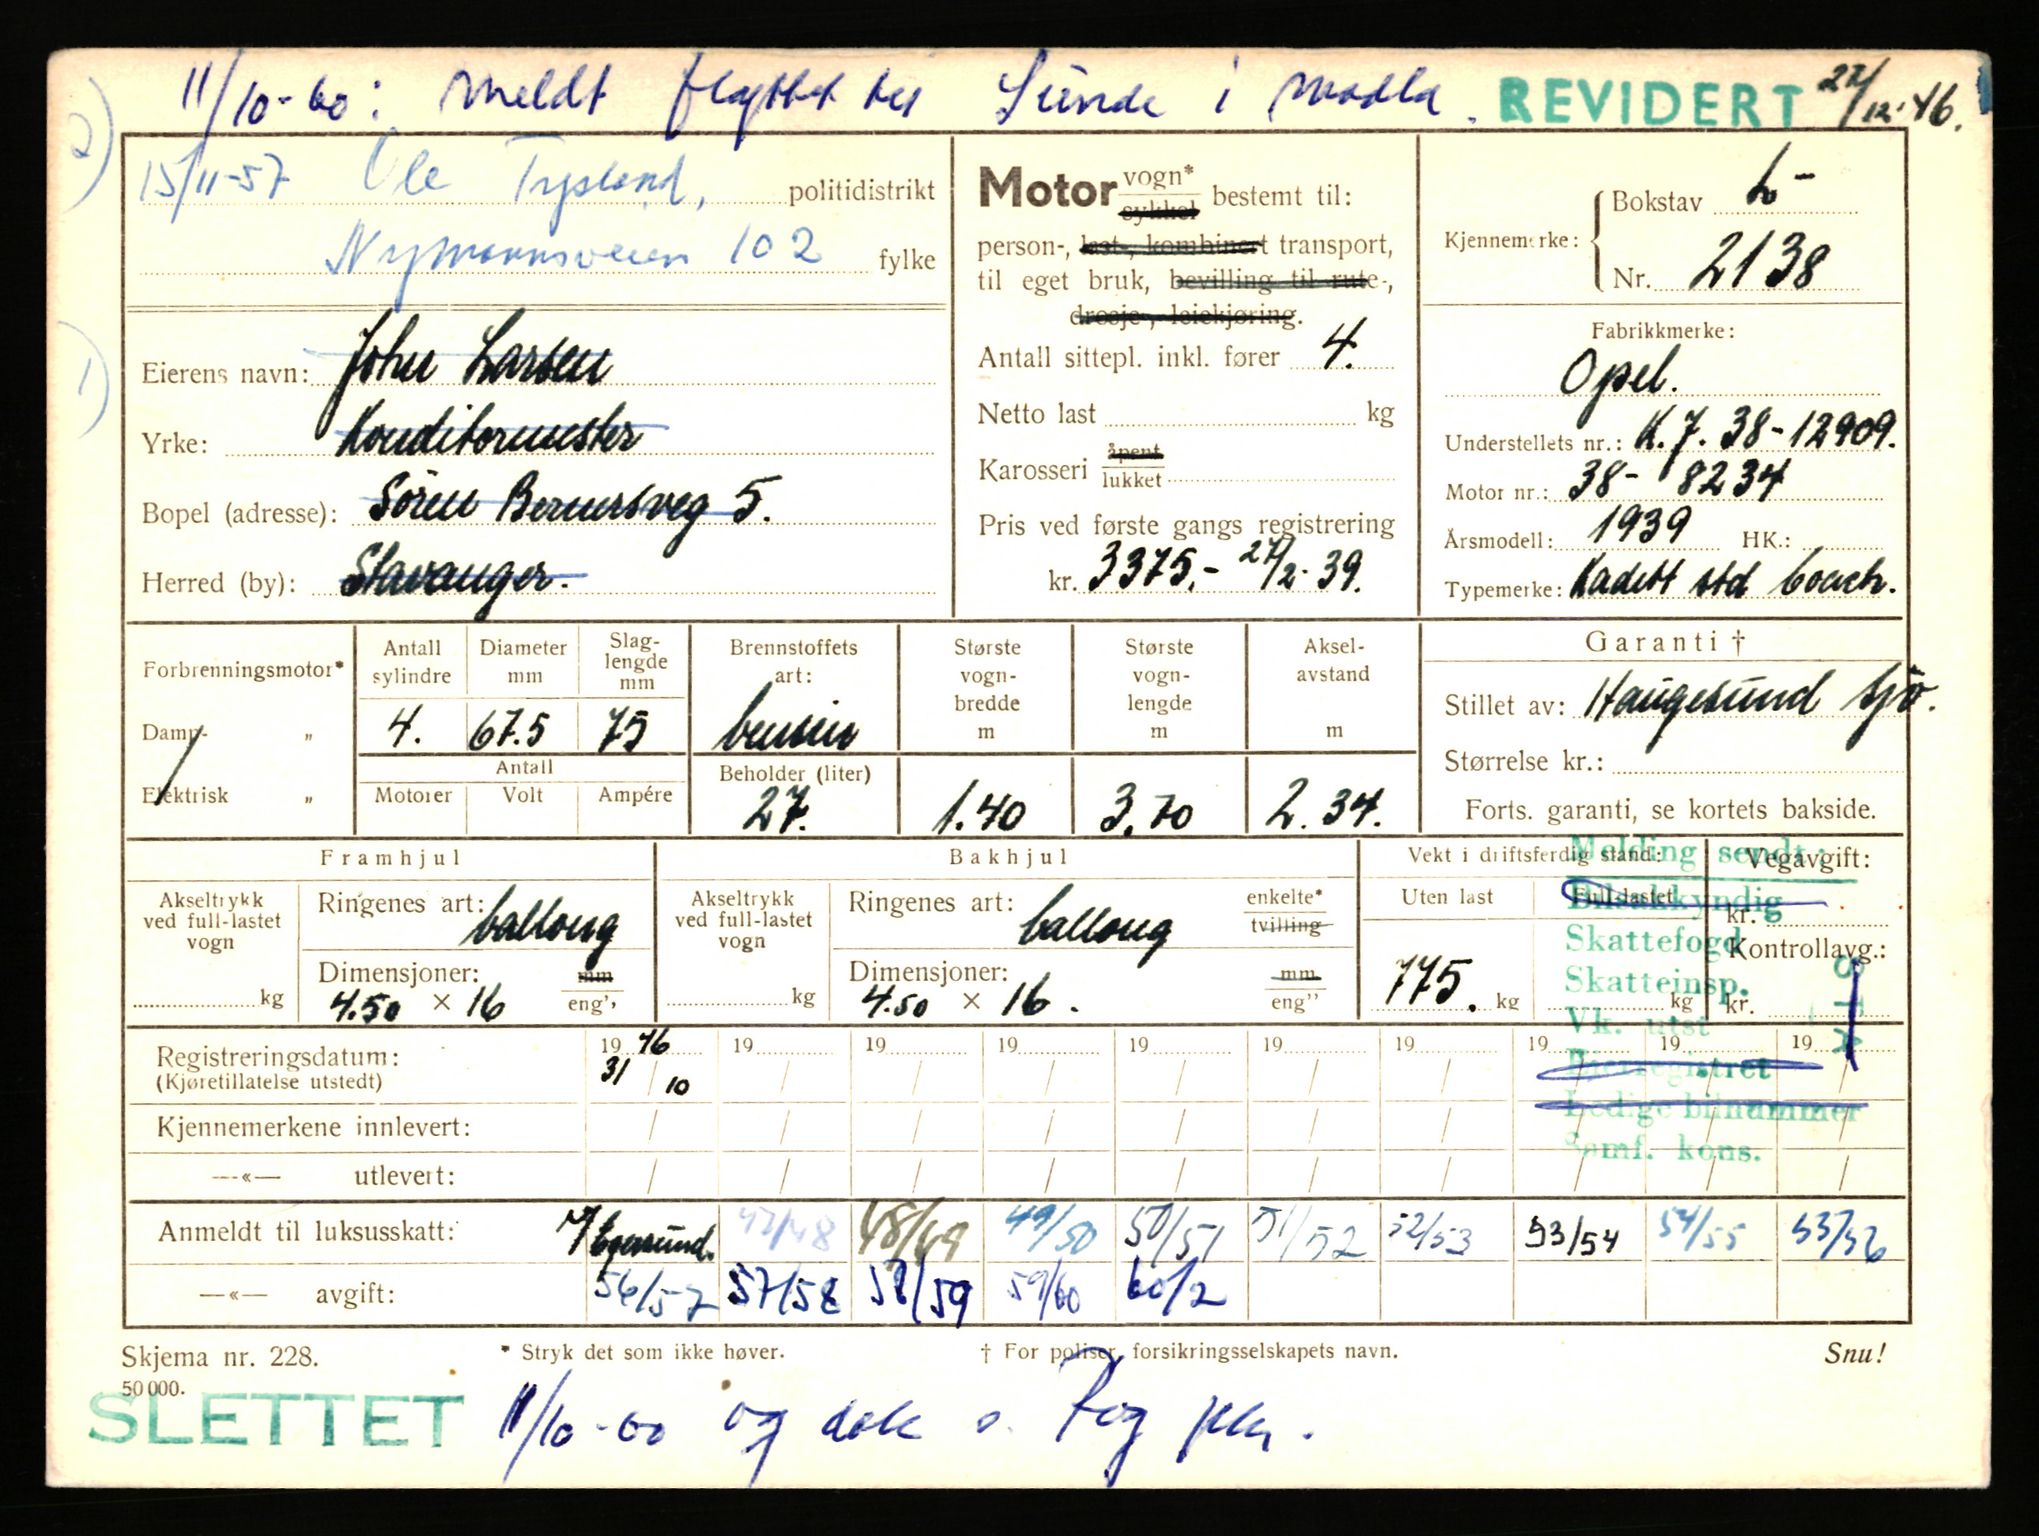 11/10-60: Meldt flyttet til Sunde i Madla. REVIDERT 27/12-46.
2)
15/11-57 Ole Tysland, politidistrikt
Nymannsveien 102 fylke
1)
Eierens navn: John Larsen
Yrke: Konditormester
Bopel (adresse): Sören Bernersveg 5.
Herred (by): Stavanger.
Motor vogn* sykkel bestemt til:
person-, last-, kombinert transport,
til eget bruk, bevilling til rute-,
drosje-, leiekjøring.
Antall sittepl. inkl. fører 4.
Netto last kg
Karosseri åpent lukket
Pris ved første gangs registrering
kr. 3375,- 27/2-39.
Kjennemerke: Bokstav L-
Nr. 2138
Fabrikkmerke:
Opel.
Understellets nr.: K.7.38-12909.
Motor nr.: 38-8234
Årsmodell: 1939 HK.:
Typemerke: Kadett std coach.
Forbrenningsmotor*
Damp- „
Elektrisk „
Antall sylindre Diameter mm Slaglengde mm
4. 67.5 75
Antall
Motorer Volt Ampére
Brennstoffets art:
bensin
Beholder (liter)
27.
Største vognbredde m
1.40
Største vognlengde m
3.70
Akselavstand m
2.34.
Garanti †
Stillet av: Haugesund Sjø.
Størrelse kr.:
Forts. garanti, se kortets bakside.
Framhjul
Akseltrykk ved full-lastet vogn
kg
Ringenes art: ballong
Dimensjoner: mm
4.50 × 16 eng''
Bakhjul
Akseltrykk ved full-lastet vogn
kg
Ringenes art: ballong enkelte* tvilling
Dimensjoner: mm
4.50 × 16. eng''
Vekt i driftsferdig stand:
Uten last Full-lastet
775. kg kg
Vegavgift:
kr.
Kontrollavg.:
kr.
Melding sendt:
Bilsakkyndig
Skattefogd
Skatteinsp.
Vk. utst
Eierregistret
Ledige bilnummer
Samf. kons.
Registreringsdatum: 1946 19 19 19 19 19 19 19 19 19
(Kjøretillatelse utstedt) 31/10
Kjennemerkene innlevert:
—«— utlevert:
Anmeldt til luksusskatt: M/Egersund. 47/48 48/49 49/50 50/51 51/52 52/53 53/54 54/55 55/56
—«— avgift: 56/57 57/58 58/59 59/60 60/2
Skjema nr. 228.
* Stryk det som ikke høver.
† For poliser, forsikringsselskapets navn.
Snu!
50 000.
SLETTET 11/10-60 og dok s. Rog